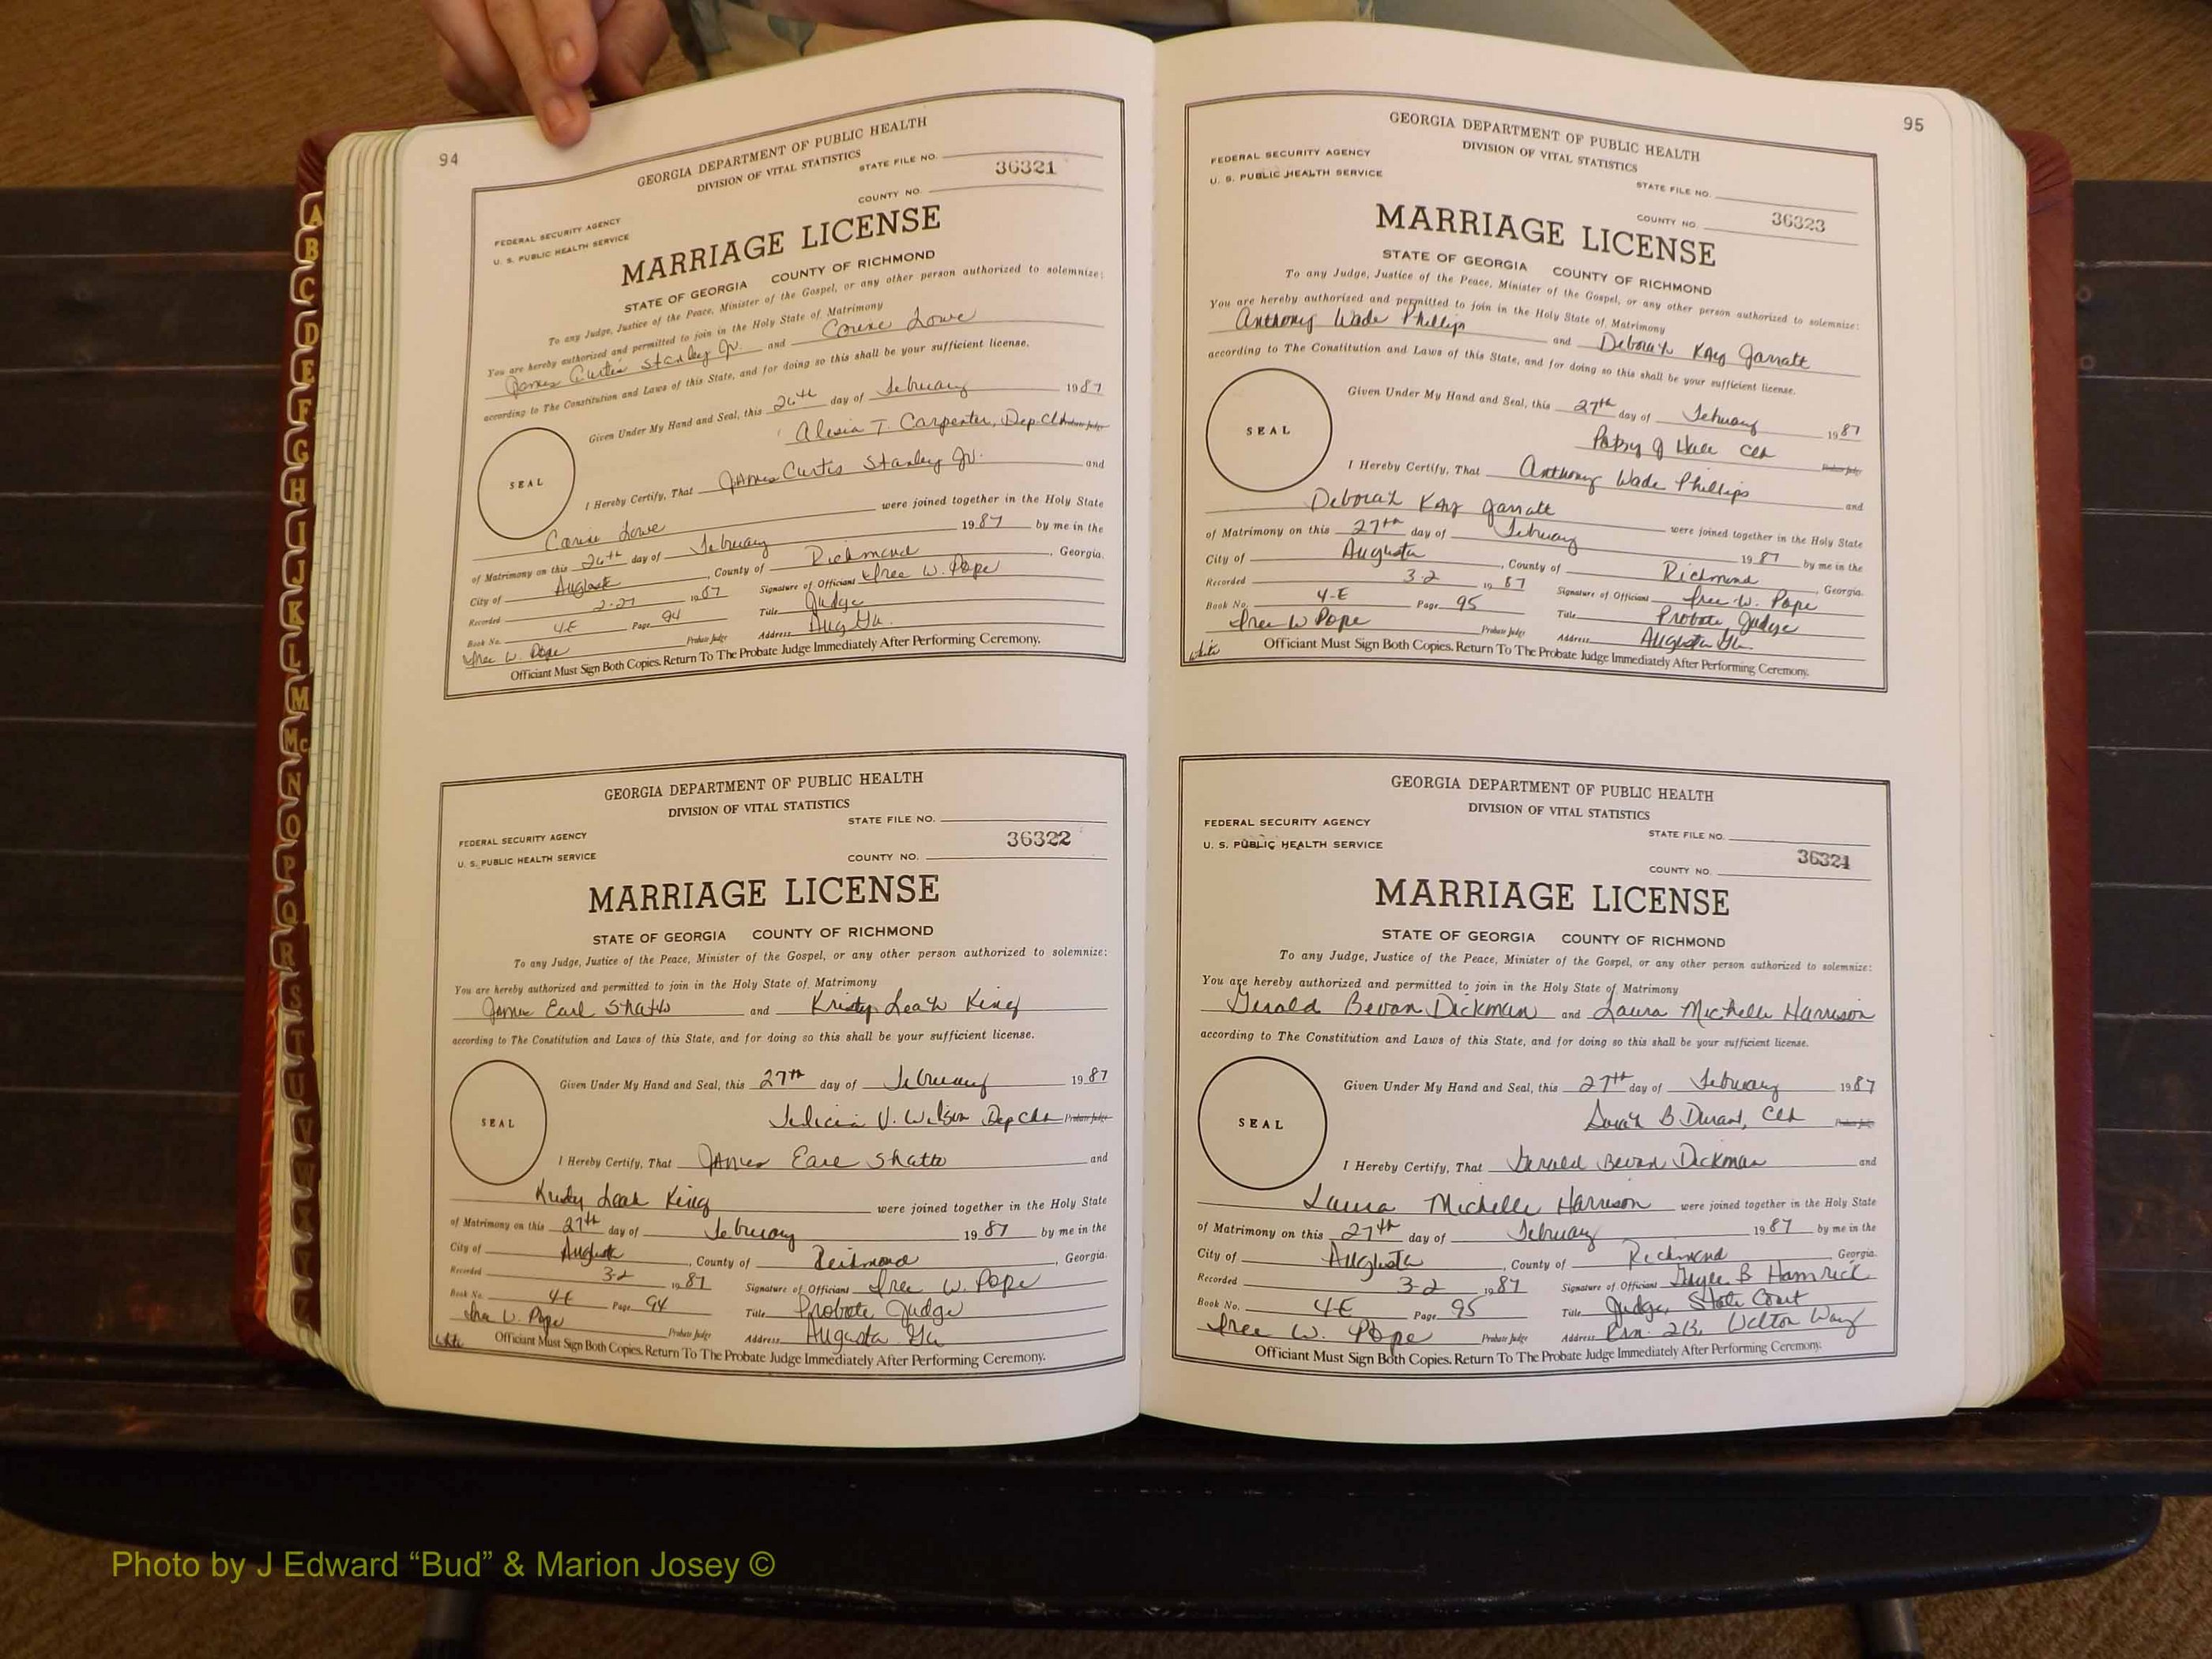 94
GEORGIA DEPARTMENT OF PUBLIC HEALTH
DIVISION OF VITAL STATISTICS
STATE FILE NO.
36321
COUNTY NO.
FEDERAL SECURITY AGENCY
U. S. PUBLIC HEALTH SERVICE
MARRIAGE LICENSE
STATE OF GEORGIA COUNTY OF RICHMOND
To any Judge, Justice of the Peace, Minister of the Gospel, or any other person authorized to solemnize:
You are hereby authorized and permitted to join in the Holy State of Matrimony
James Curtis Stanley Jr. and Lowe
according to The Constitution and Laws of this State, and for doing so this shall be your sufficient license.
Given Under My Hand and Seal, this 26th day of February 1987
Alesia T. Carpenter, Dep. Clk Probate Judge
SEAL
I Hereby Certify, That James Curtis Stanley Jr. and
Lowe were joined together in the Holy State
of Matrimony on this 26th day of February 1987 by me in the
City of Augusta, County of Richmond, Georgia.
Recorded 2-27 1987 Signature of Officiant W. Pope
Book No. 4E Page 94 Title Judge
W. Pope Probate Judge Address Aug Ga.
Officiant Must Sign Both Copies. Return To The Probate Judge Immediately After Performing Ceremony.
GEORGIA DEPARTMENT OF PUBLIC HEALTH
DIVISION OF VITAL STATISTICS
STATE FILE NO.
FEDERAL SECURITY AGENCY
36322
U. S. PUBLIC HEALTH SERVICE
COUNTY NO.
MARRIAGE LICENSE
STATE OF GEORGIA COUNTY OF RICHMOND
To any Judge, Justice of the Peace, Minister of the Gospel, or any other person authorized to solemnize:
You are hereby authorized and permitted to join in the Holy State of Matrimony
James Earl Shatto and Kristy Leah King
according to The Constitution and Laws of this State, and for doing so this shall be your sufficient license.
Given Under My Hand and Seal, this 27th day of February 1987
Felicia V. Wilson Dep Clk Probate Judge
SEAL
I Hereby Certify, That James Earl Shatto and
Leah King were joined together in the Holy State
of Matrimony on this 27th day of February 1987 by me in the
City of Augusta, County of Richmond, Georgia.
Recorded 3-2 1987 Signature of Officiant W. Pope
Book No. 4E Page 94 Title Probate Judge
W. Pope Probate Judge Address Augusta Ga
white Officiant Must Sign Both Copies. Return To The Probate Judge Immediately After Performing Ceremony.
95
GEORGIA DEPARTMENT OF PUBLIC HEALTH
DIVISION OF VITAL STATISTICS
FEDERAL SECURITY AGENCY
U. S. PUBLIC HEALTH SERVICE
STATE FILE NO.
COUNTY NO. 36323
MARRIAGE LICENSE
STATE OF GEORGIA COUNTY OF RICHMOND
To any Judge, Justice of the Peace, Minister of the Gospel, or any other person authorized to solemnize:
You are hereby authorized and permitted to join in the Holy State of Matrimony
Anthony Wade Phillips and Deborah Kay Jarratt
according to The Constitution and Laws of this State, and for doing so this shall be your sufficient license.
Given Under My Hand and Seal, this 27th day of February 1987
Patsy J Clk Probate Judge
SEAL
I Hereby Certify, That Anthony Wade Phillips and
Deborah Kay Jarratt were joined together in the Holy State
of Matrimony on this 27th day of February 1987 by me in the
City of Augusta, County of Richmond, Georgia.
Recorded 3-2 1987 Signature of Officiant W. Pope
Book No. 4-E Page 95 Title Probate Judge
W Pope Probate Judge Address Augusta Ga
white Officiant Must Sign Both Copies. Return To The Probate Judge Immediately After Performing Ceremony.
GEORGIA DEPARTMENT OF PUBLIC HEALTH
DIVISION OF VITAL STATISTICS
FEDERAL SECURITY AGENCY
STATE FILE NO.
U. S. PUBLIC HEALTH SERVICE
36324
COUNTY NO.
MARRIAGE LICENSE
STATE OF GEORGIA COUNTY OF RICHMOND
To any Judge, Justice of the Peace, Minister of the Gospel, or any other person authorized to solemnize:
You are hereby authorized and permitted to join in the Holy State of Matrimony
Gerald Bevan Dickman and Laura Michelle Harrison
according to The Constitution and Laws of this State, and for doing so this shall be your sufficient license.
Given Under My Hand and Seal, this 27th day of February 1987
Sarah B Durant, Clk Probate Judge
SEAL
I Hereby Certify, That Gerald Bevan Dickman and
Laura Michelle Harrison were joined together in the Holy State
of Matrimony on this 27th day of February 1987 by me in the
City of Augusta, County of Richmond, Georgia.
Recorded 3-2 1987 Signature of Officiant Gayle B Hamrick
Book No. 4E Page 95 Title Judge, State Court
W. Pope Probate Judge Address Rm. 213, Walton Way
Officiant Must Sign Both Copies. Return To The Probate Judge Immediately After Performing Ceremony.
A
B
C
D
E
F
G
H
I
J
K
L
M
Mc
N
O
P
Q
R
S
T
U
V
W
Photo by J Edward “Bud” & Marion Josey ©